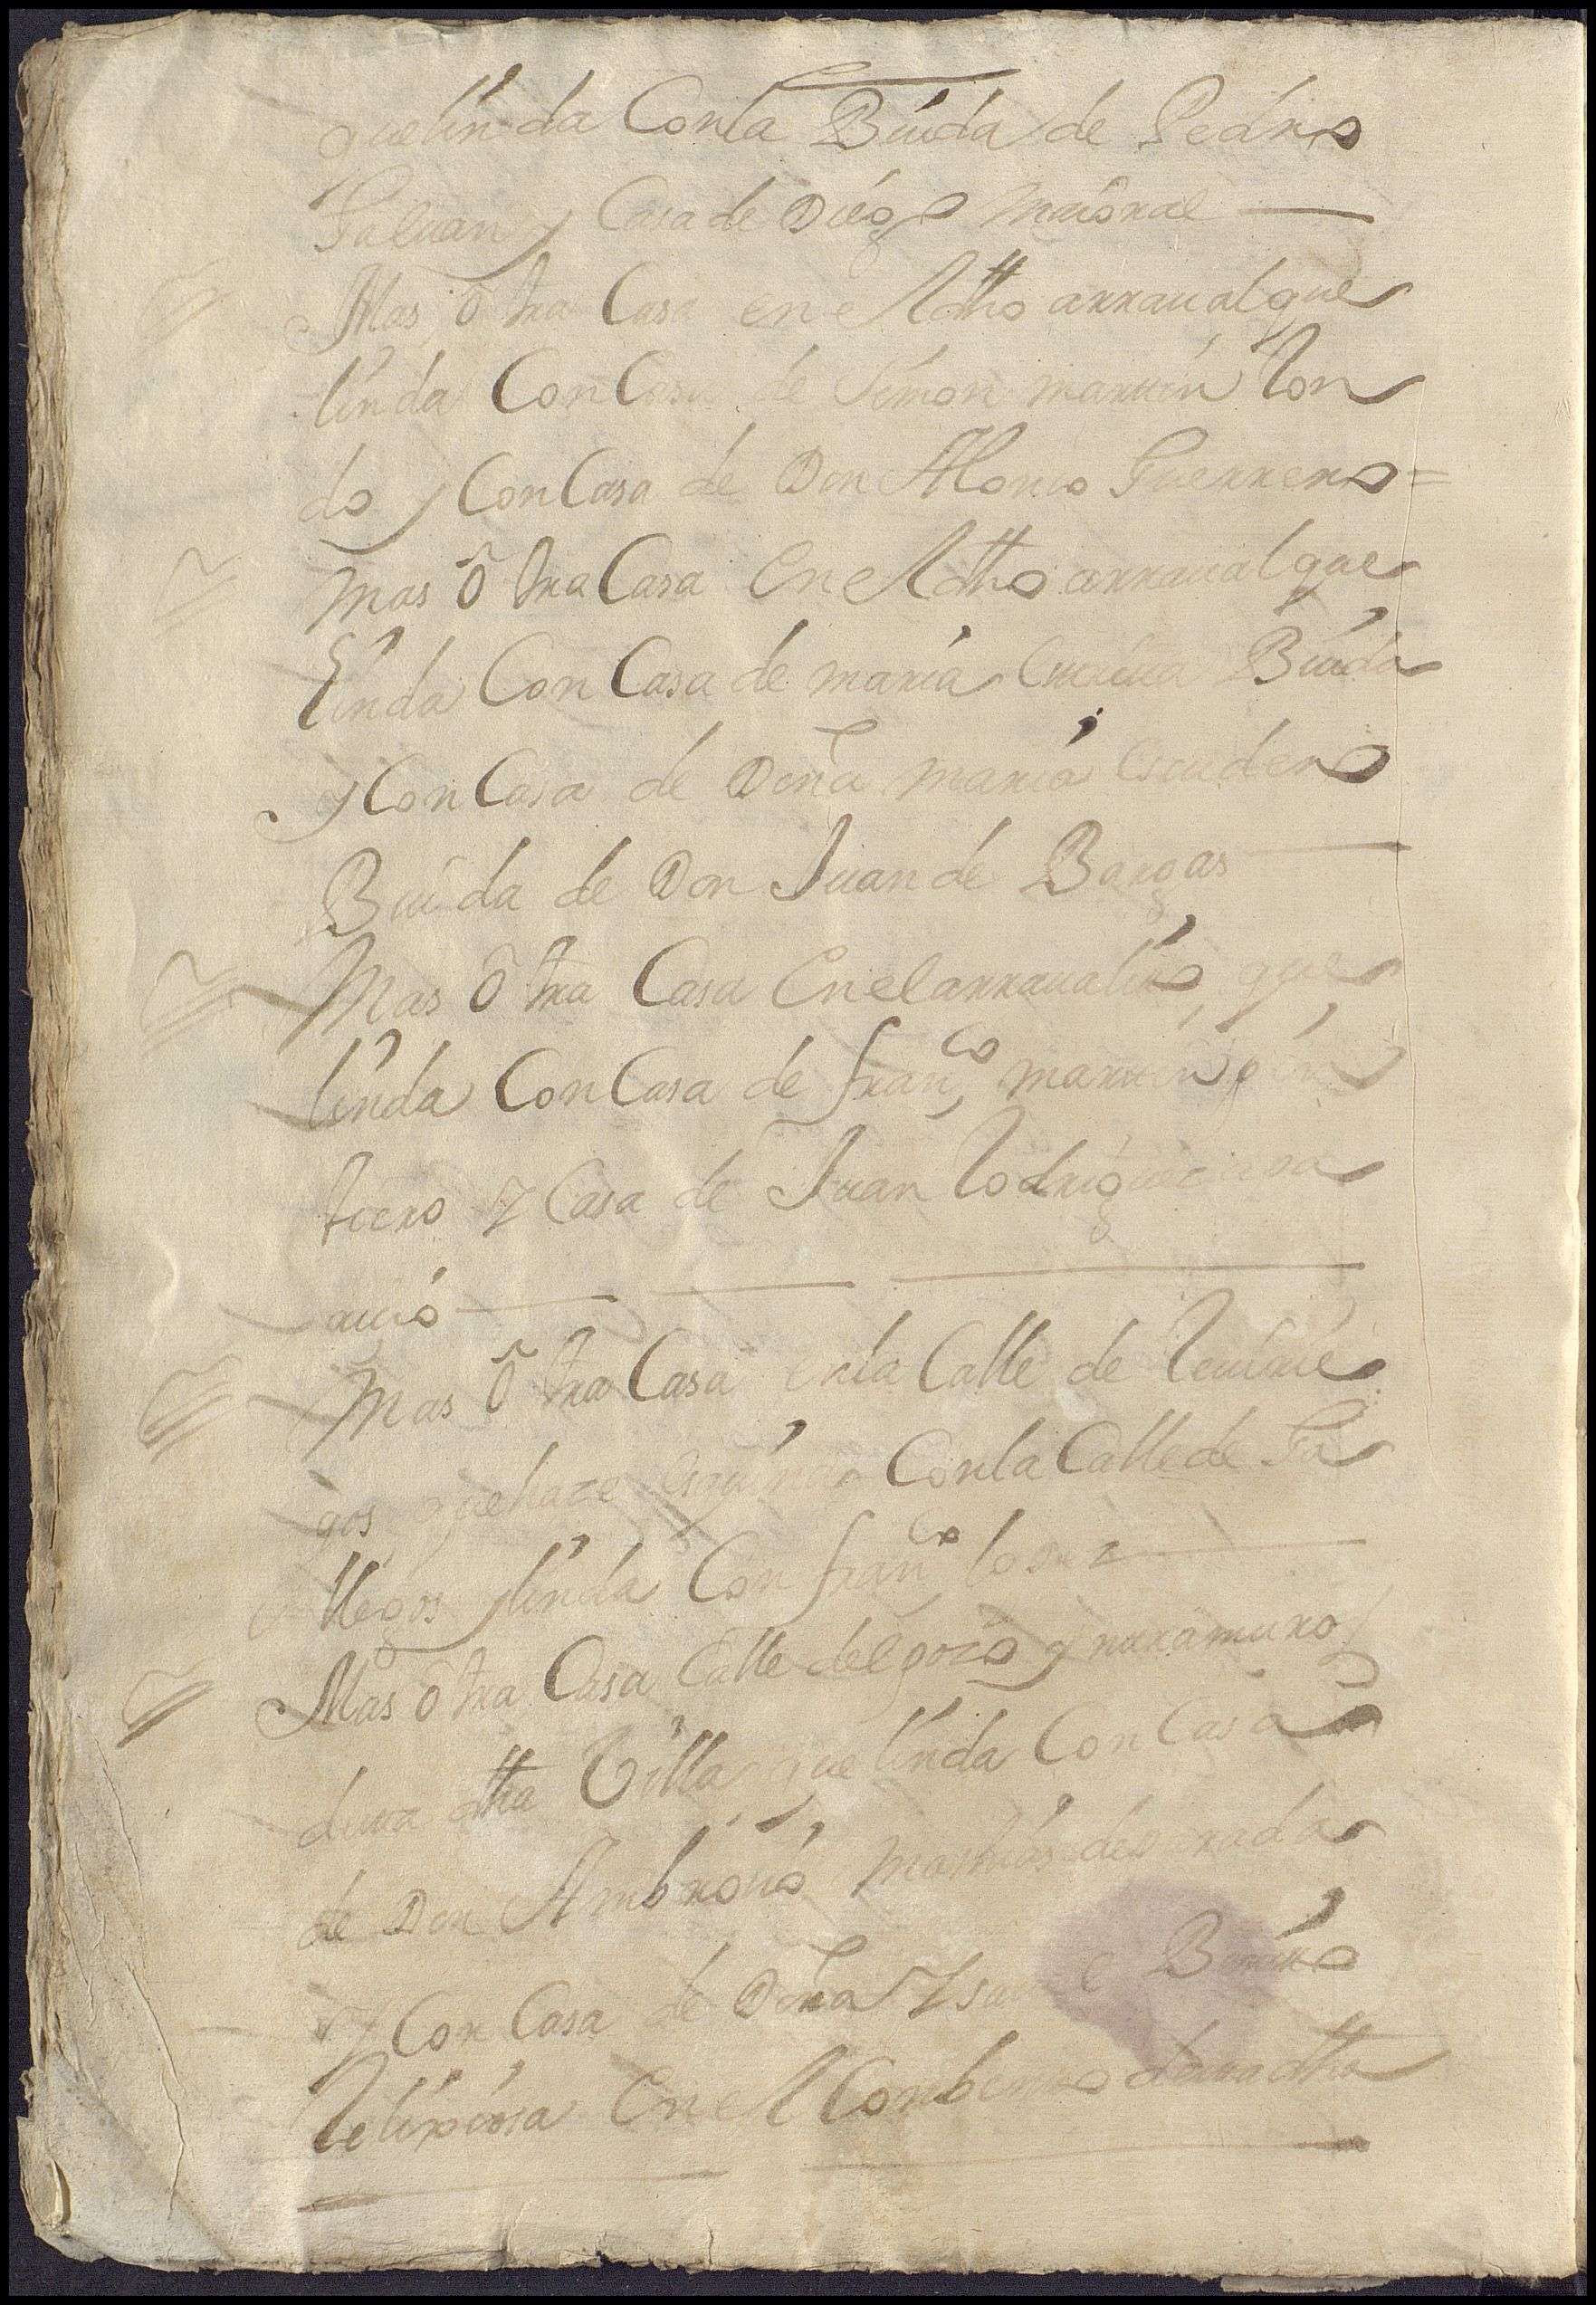 que linda Con la Biuda de Pedro
Galuan y Casa de Diego maioral
Mas otra Casa en el dho arraual que
linda Con Casa de Simon martin Ron
do y Con Casa de Don Alonso Guerrero =
mas otra Casa En el dho arraual que
linda Con Casa de maria Biuda
y Con Casa de Doña maria escudero
Biuda de Don Juan de Bargas
Mas otra Casa En el arraualito, que
linda Con Casa de franco, martin
tero y Casa de Juan Rodriguez
auio
Mas otra Casa en la Calle de
gos que haze esquina Con la Calle de Ga
llegos y linda Con franco, lopez
Mas otra Casa Calle del pozo y nura muro
desta dha Villa, que linda Con Casa
de Don Ambrosio
y Con Casa de Doña Ysauel
Religiosa En el Conbento desta dha